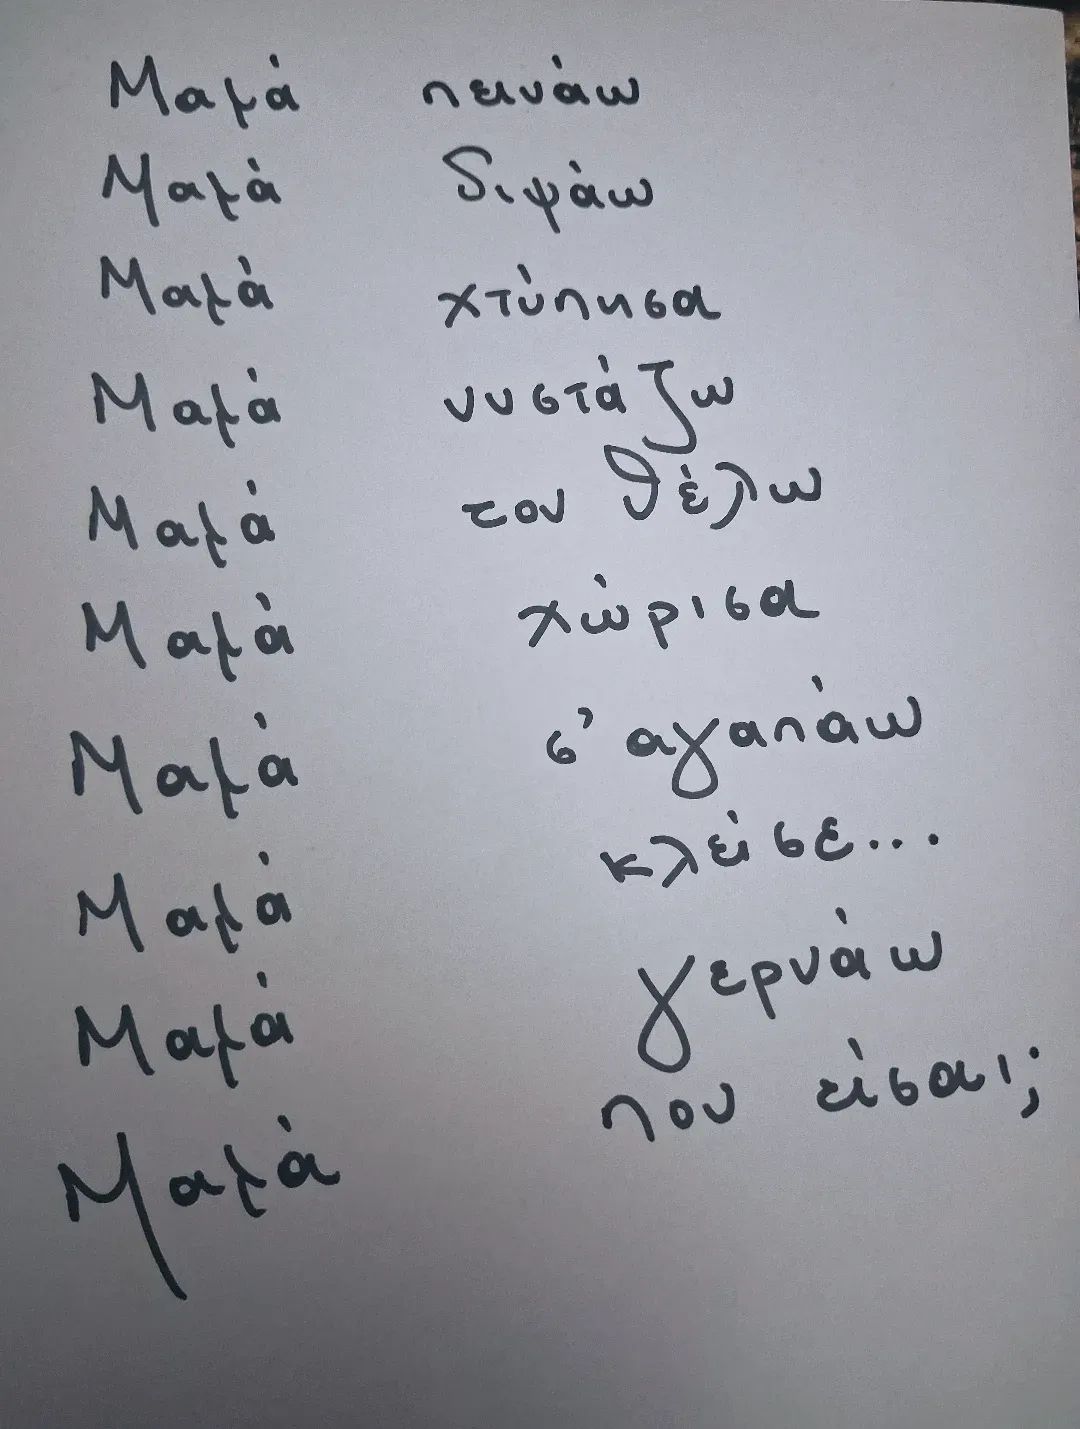 Μαμά πεινάω
Μαμά διψάω
Μαμά χτύπησα
Μαμά νυστάζω
Μαμά τον θέλω
Μαμά χώρισα
Μαμά σ' αγαπάω
Μαμά κλείσε...
Μαμά γερνάω
Μαμά που είσαι;